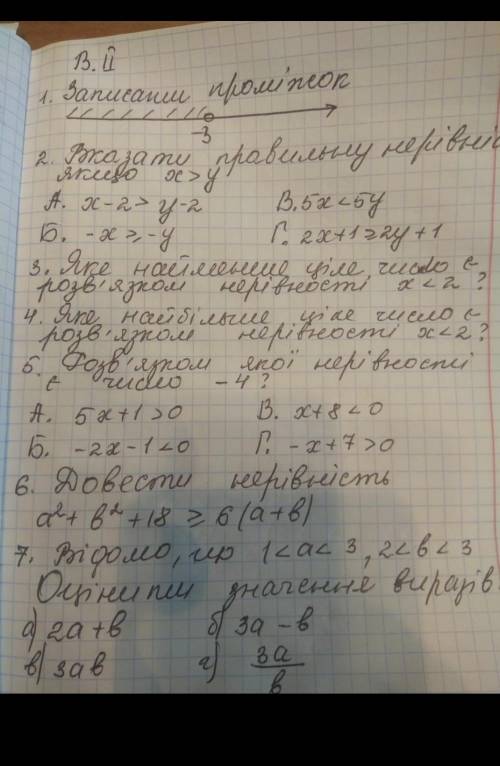 В. ІІ
1. Записати проміжок
-3
2. Вказати правильну нерівніс
якщо x > y
А. x-2 > y-2 В. 5x < 5y
Б. -x ≥ -y Г. 2x+1 ≥ 2y+1
3. Яке найменше ціле число є
розв'язком нерівності x < 2 ?
4. Яке найбільше ціле число є
розв'язком нерівності x < 2?
5. Розв'язком якої нерівності
є число -4?
А. 5x+1 > 0 В. x+8 < 0
Б. -2x-1 < 0 Г. -x+7 > 0
6. Довести нерівність
a² + b² + 18 ≥ 6(a+b)
7. Відомо, що 1 < a < 3, 2 < b < 3
Оцінити значення виразів
а) 2a+b б) 3a-b
в) 3ab г) 3a/b